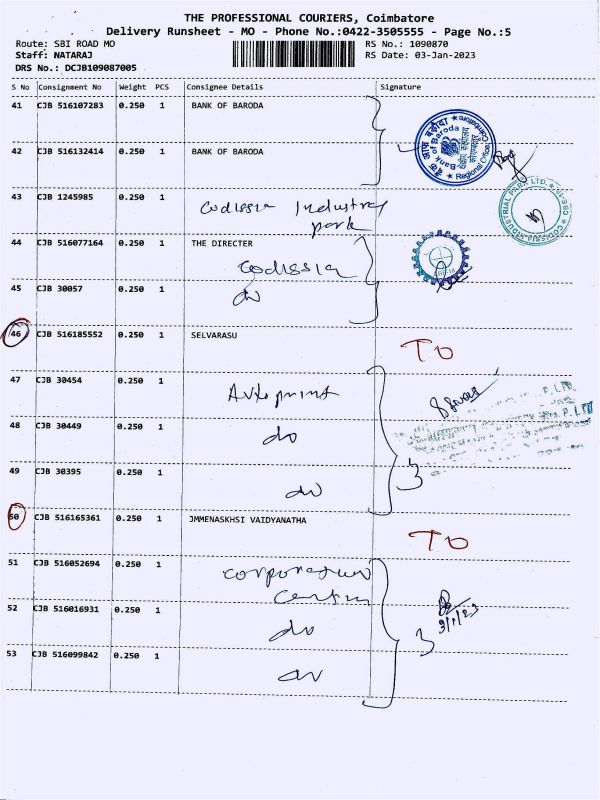 THE PROFESSIONAL COURIERS, Coimbatore
Delivery Runsheet - MO - Phone No.:0422-3505555 - Page No.:5
Route: SBI ROAD MO RS No.: 1090870
Staff: NATARAJ RS Date: 03-Jan-2023
DRS No.: DCJB109087005
S No Consignment No Weight PCS Consignee Details Signature
41 CJB 516107283 0.250 1 BANK OF BARODA
42 CJB 516132414 0.250 1 BANK OF BARODA
बैंक ऑफ़ बड़ौदा
Bank of Baroda
Regional Office
43 CJB 1245985 0.250 1 Codissia Industry
park
44 CJB 516077164 0.250 1 THE DIRECTER
Codissia
45 CJB 30057 0.250 1 do
46 CJB 516185552 0.250 1 SELVARASU
TO
47 CJB 30454 0.250 1 Autoprint
48 CJB 30449 0.250 1 do
49 CJB 30395 0.250 1 do
3
50 CJB 516165361 0.250 1 JMMENASKHSI VAIDYANATHA
TO
51 CJB 516052694 0.250 1 Corporation
Centre
52 CJB 516016931 0.250 1 do
3 3/1/23
53 CJB 516099842 0.250 1 do